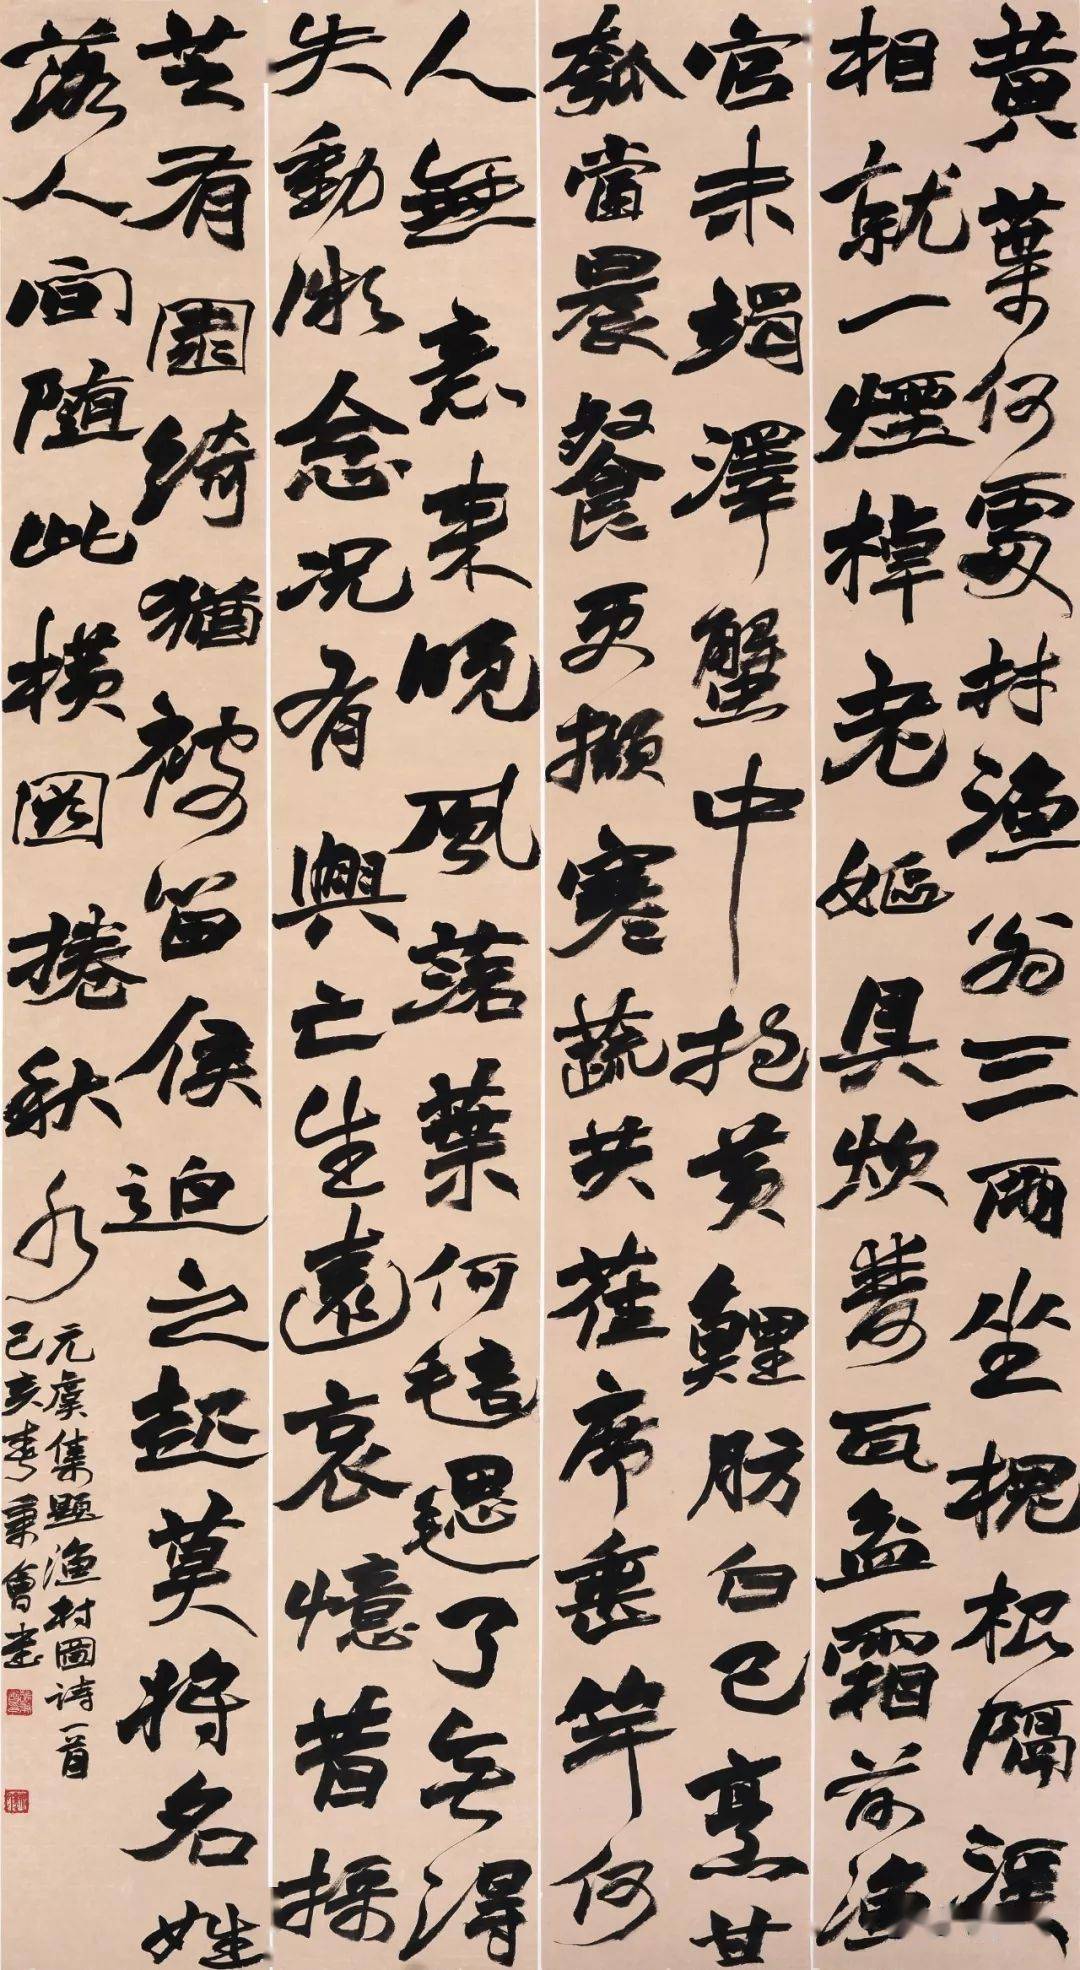 黃葉何處村漁翁三兩坐槐根隔溪
相就一煙棹老嫗具炊雙瓦盆霜前漁
官未竭澤蟹中抱黃鯉肪白已烹甘
瓠當晨餐更擷寒蔬共萑席垂竿何
人無意來晚風落葉何毰毸了無得
失動微念況有興亡生遠哀憶昔採
芝有園綺猶被留侯迫之起莫將名姓
落人間隨此橫圖捲秋水
元虞集題漁村圖詩一首
己亥春秉會書